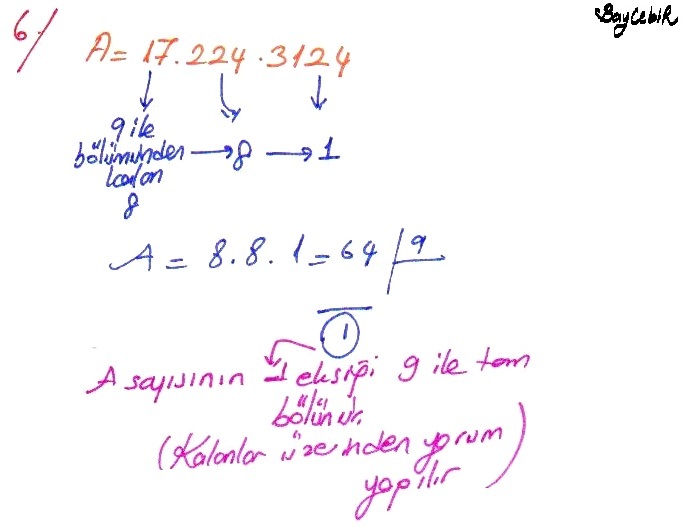 BayCebiR
6/
A = 17.224.3124
9 ile
bölümünden → 8 → 1
kalan
8
A = 8.8.1 = 64 | 9
1
A sayısının 1 eksiği 9 ile tam
bölünür.
(Kalanlar üzerinden yorum
yapılır)